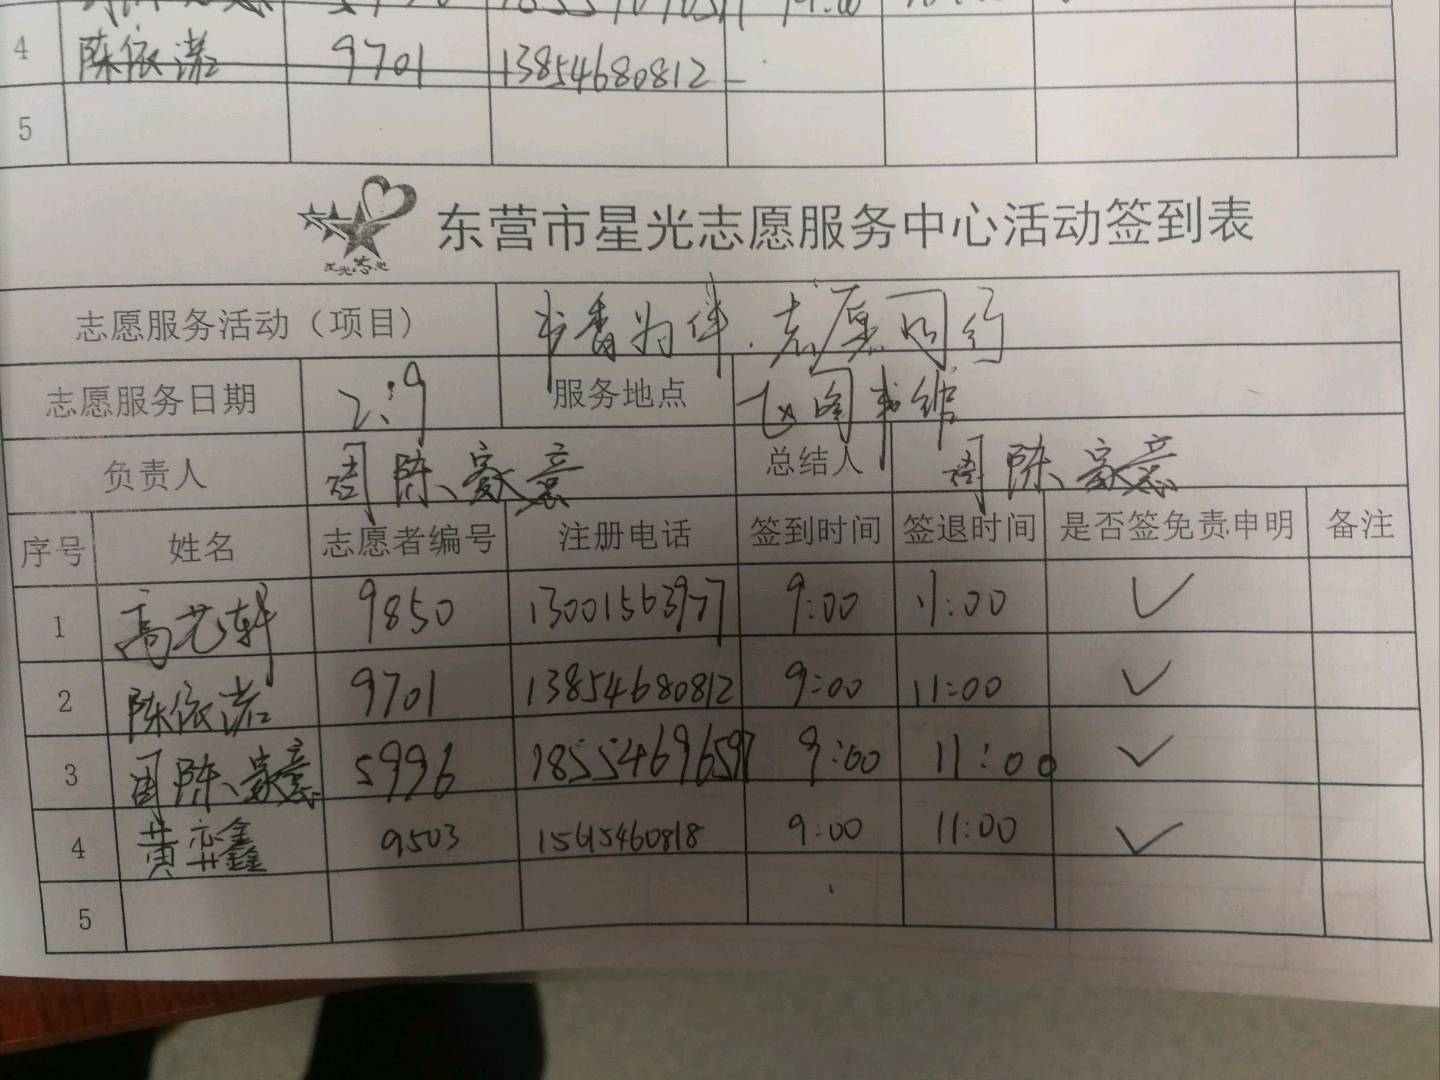 4 陈依诺 9701 13854680812
5
星光志愿
东营市星光志愿服务中心活动签到表
志愿服务活动（项目） 书香为伴.志愿同行
志愿服务日期 2.9 服务地点 飞阅书馆
负责人 周陈豪意 总结人 周陈豪意
序号 姓名 志愿者编号 注册电话 签到时间 签退时间 是否签免责申明 备注
1 高艺轩 9850 13001563977 9:00 11:00 ✓
2 陈依诺 9701 13854680812 9:00 11:00 ✓
3 周陈豪意 5996 18554696597 9:00 11:00 ✓
4 黄弈鑫 9503 15615460818 9:00 11:00 ✓
5